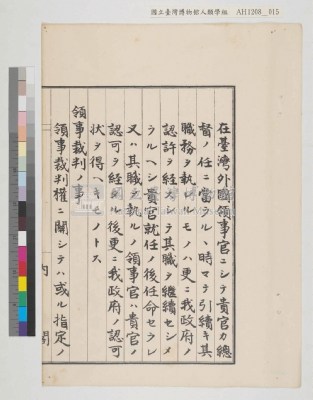 國立臺灣博物館人類學組 AH1208_015
在臺灣外國領事官ニシテ貴官カ總
督ノ任ニ當ラルヽ時マテ引續キ其
職務ヲ執ルモノハ更ニ我政府ノ
認許ヲ経スシテ其職ヲ繼續セシメ
ラルヘシ貴官就任ノ後任命セラレ
又ハ其職ヲ執ルノ領事官ハ貴官ノ
認可ヲ経タル後更ニ我政府ノ認可
状ヲ得ヘキモノトス
領事裁判ノ事
領事裁判權ニ關シテハ或ル指定ノ
内閣